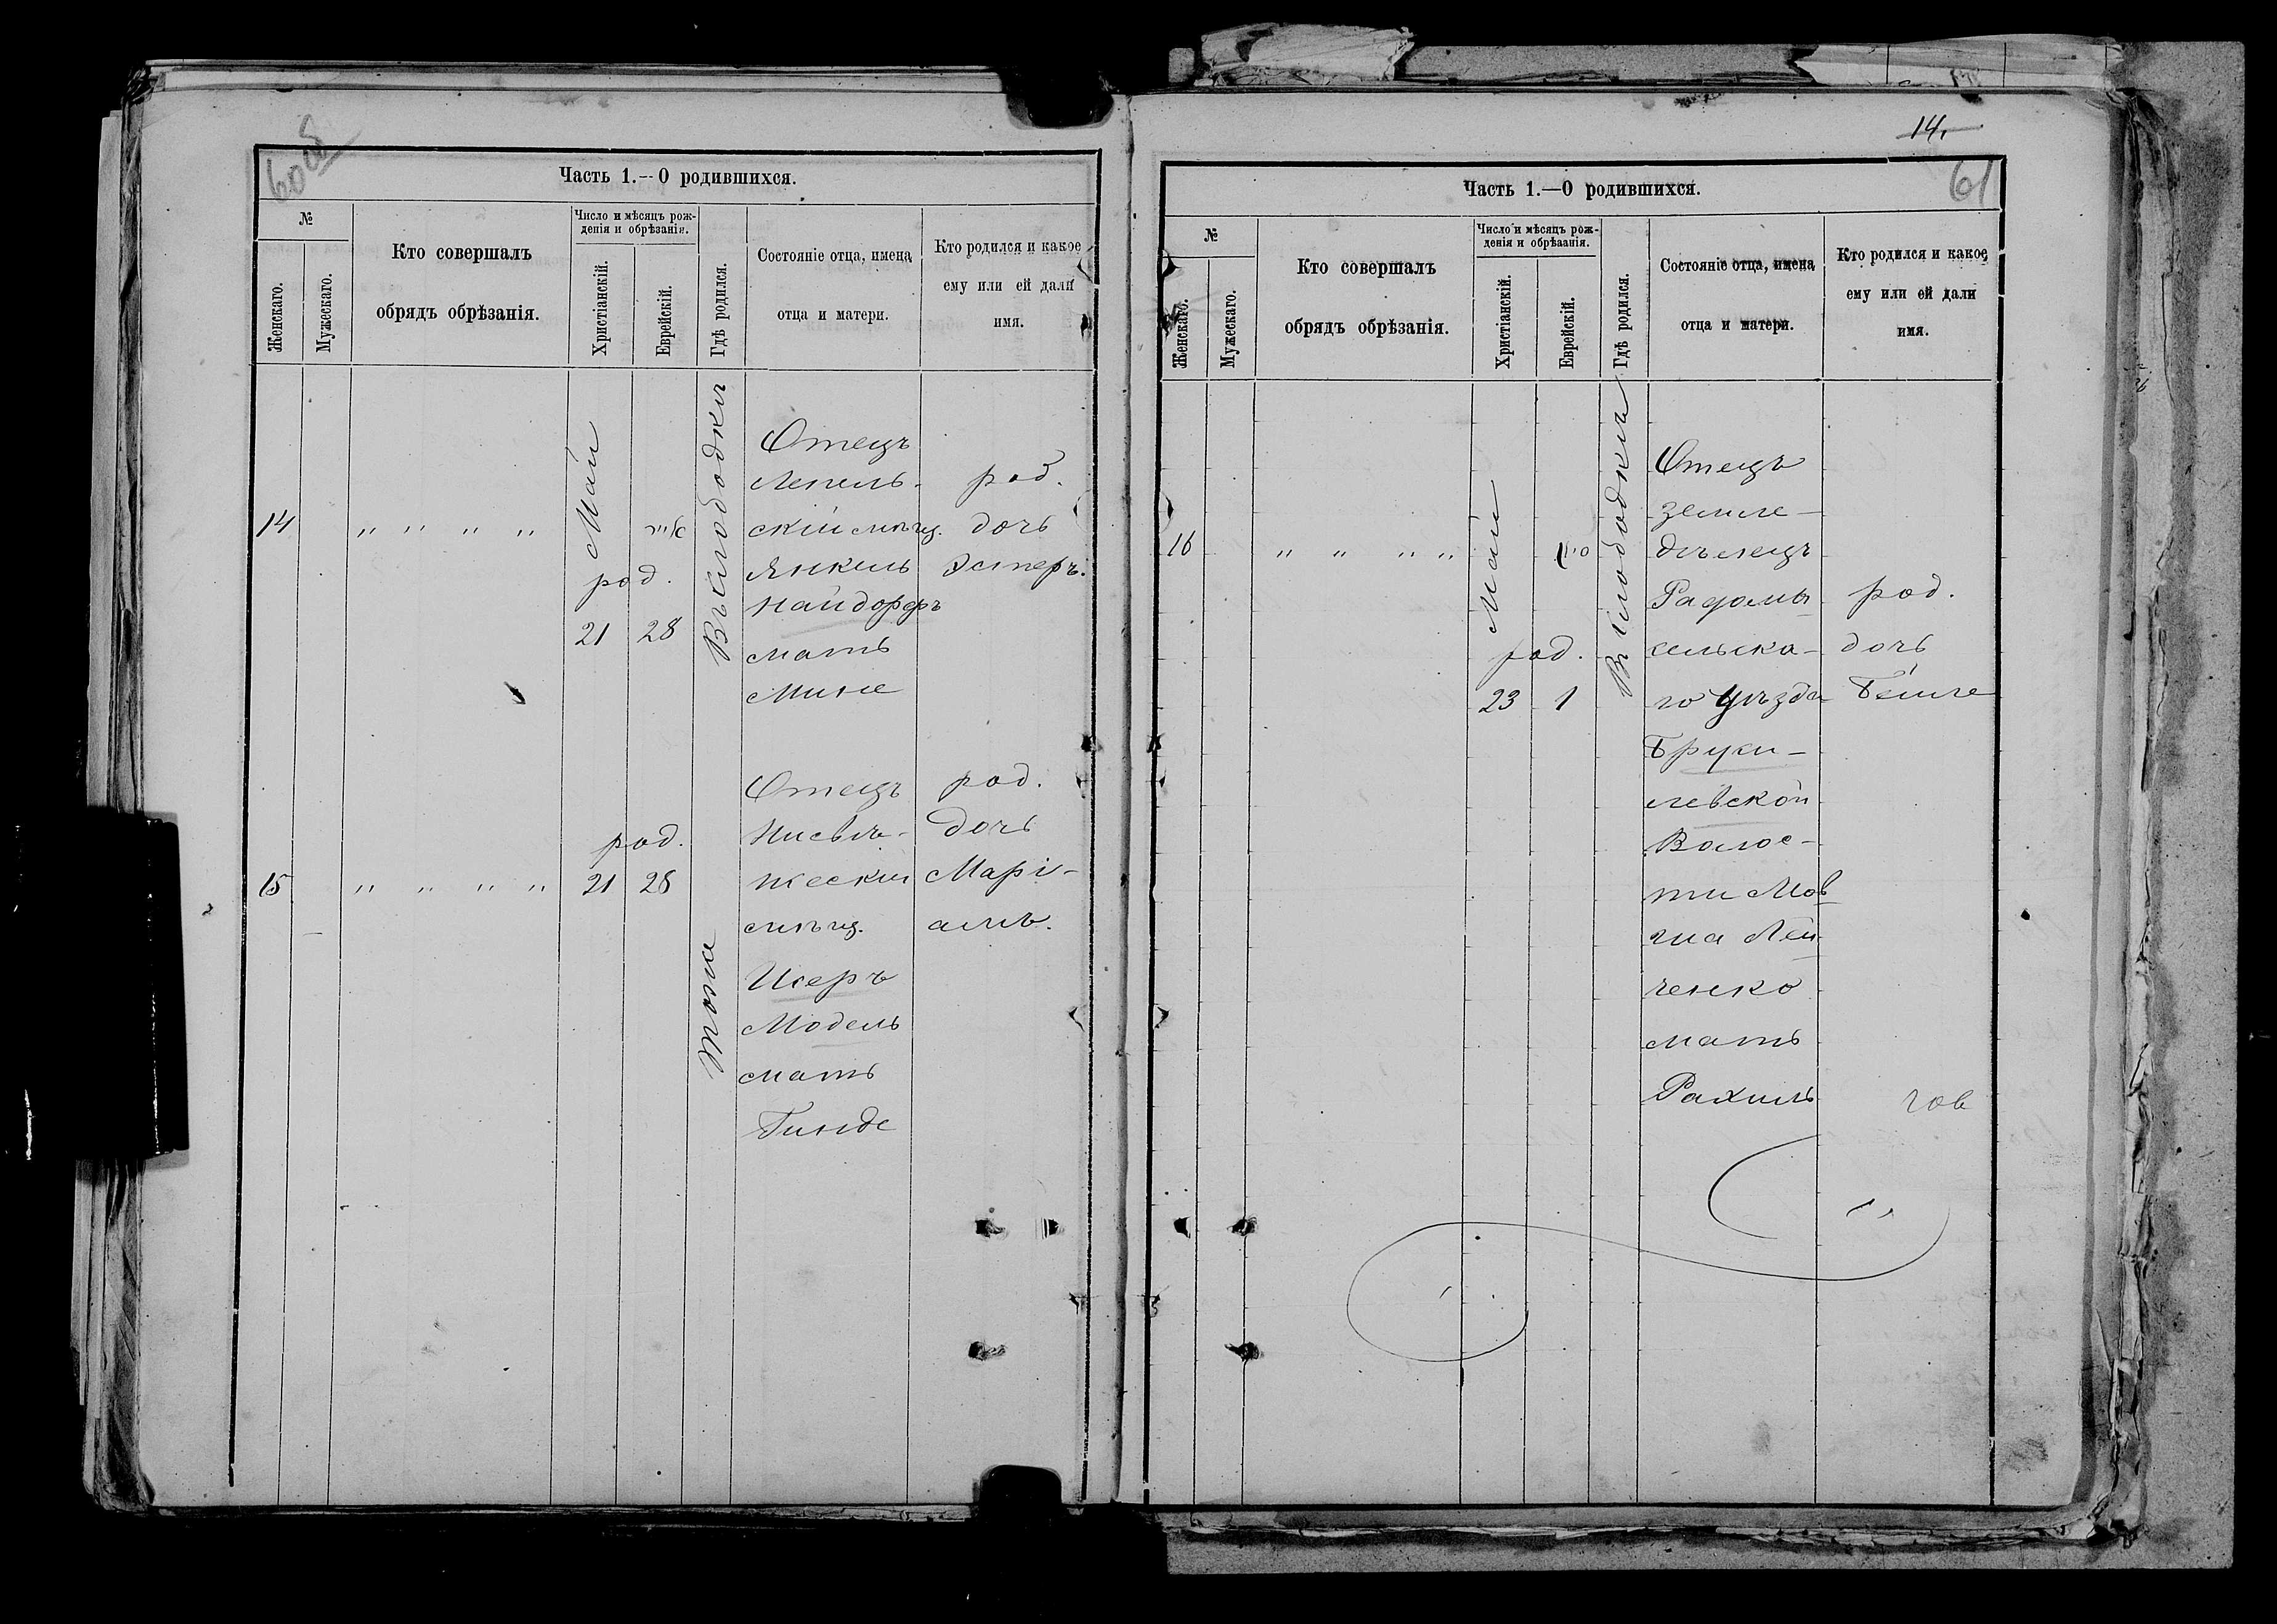 60 об
Часть 1.-- О родившихся.
№
Женскаго.
Мужескаго.
Кто совершалъ
обрядъ обрѣзанія.
Число и мѣсяцъ рож-
денія и обрѣзанія.
Христіанскій.
Еврейскій.
Гдѣ родился.
Состояніе отца, имена
отца и матери.
Кто родился и какое
ему или ей дали
имя.
14
" " " "
Май
род.
21
28
Въ Слободкѣ
Отецъ
Лепель-
скій мѣщ.
Янкель
Найдорфъ
мать
Мине
род.
дочь
Эстеръ.
15
" " " "
род.
21
28
тоже
Отецъ
жескій
мѣщ.
Исеръ
Модель
мать
Гинде
род.
дочь
Марі-
амъ.
14.
61
Часть 1.—О родившихся.
№
Женскаго.
Мужескаго.
Кто совершалъ
обрядъ обрѣзанія.
Число и мѣсяцъ рож-
денія и обрѣзанія.
Христіанскій.
Еврейскій.
Гдѣ родился.
Состояніе отца, имена
отца и матери.
Кто родился и какое
ему или ей дали
имя.
16
" " " "
Май
род.
23
1
Въ Слободкѣ
Отецъ
земле-
дѣлецъ
Радомы
сельска-
го Уѣзда
Бруси-
левской
Волос-
ти Мов
ша Лей
ченко
мать
Рахиль
род.
дочь
Бейле